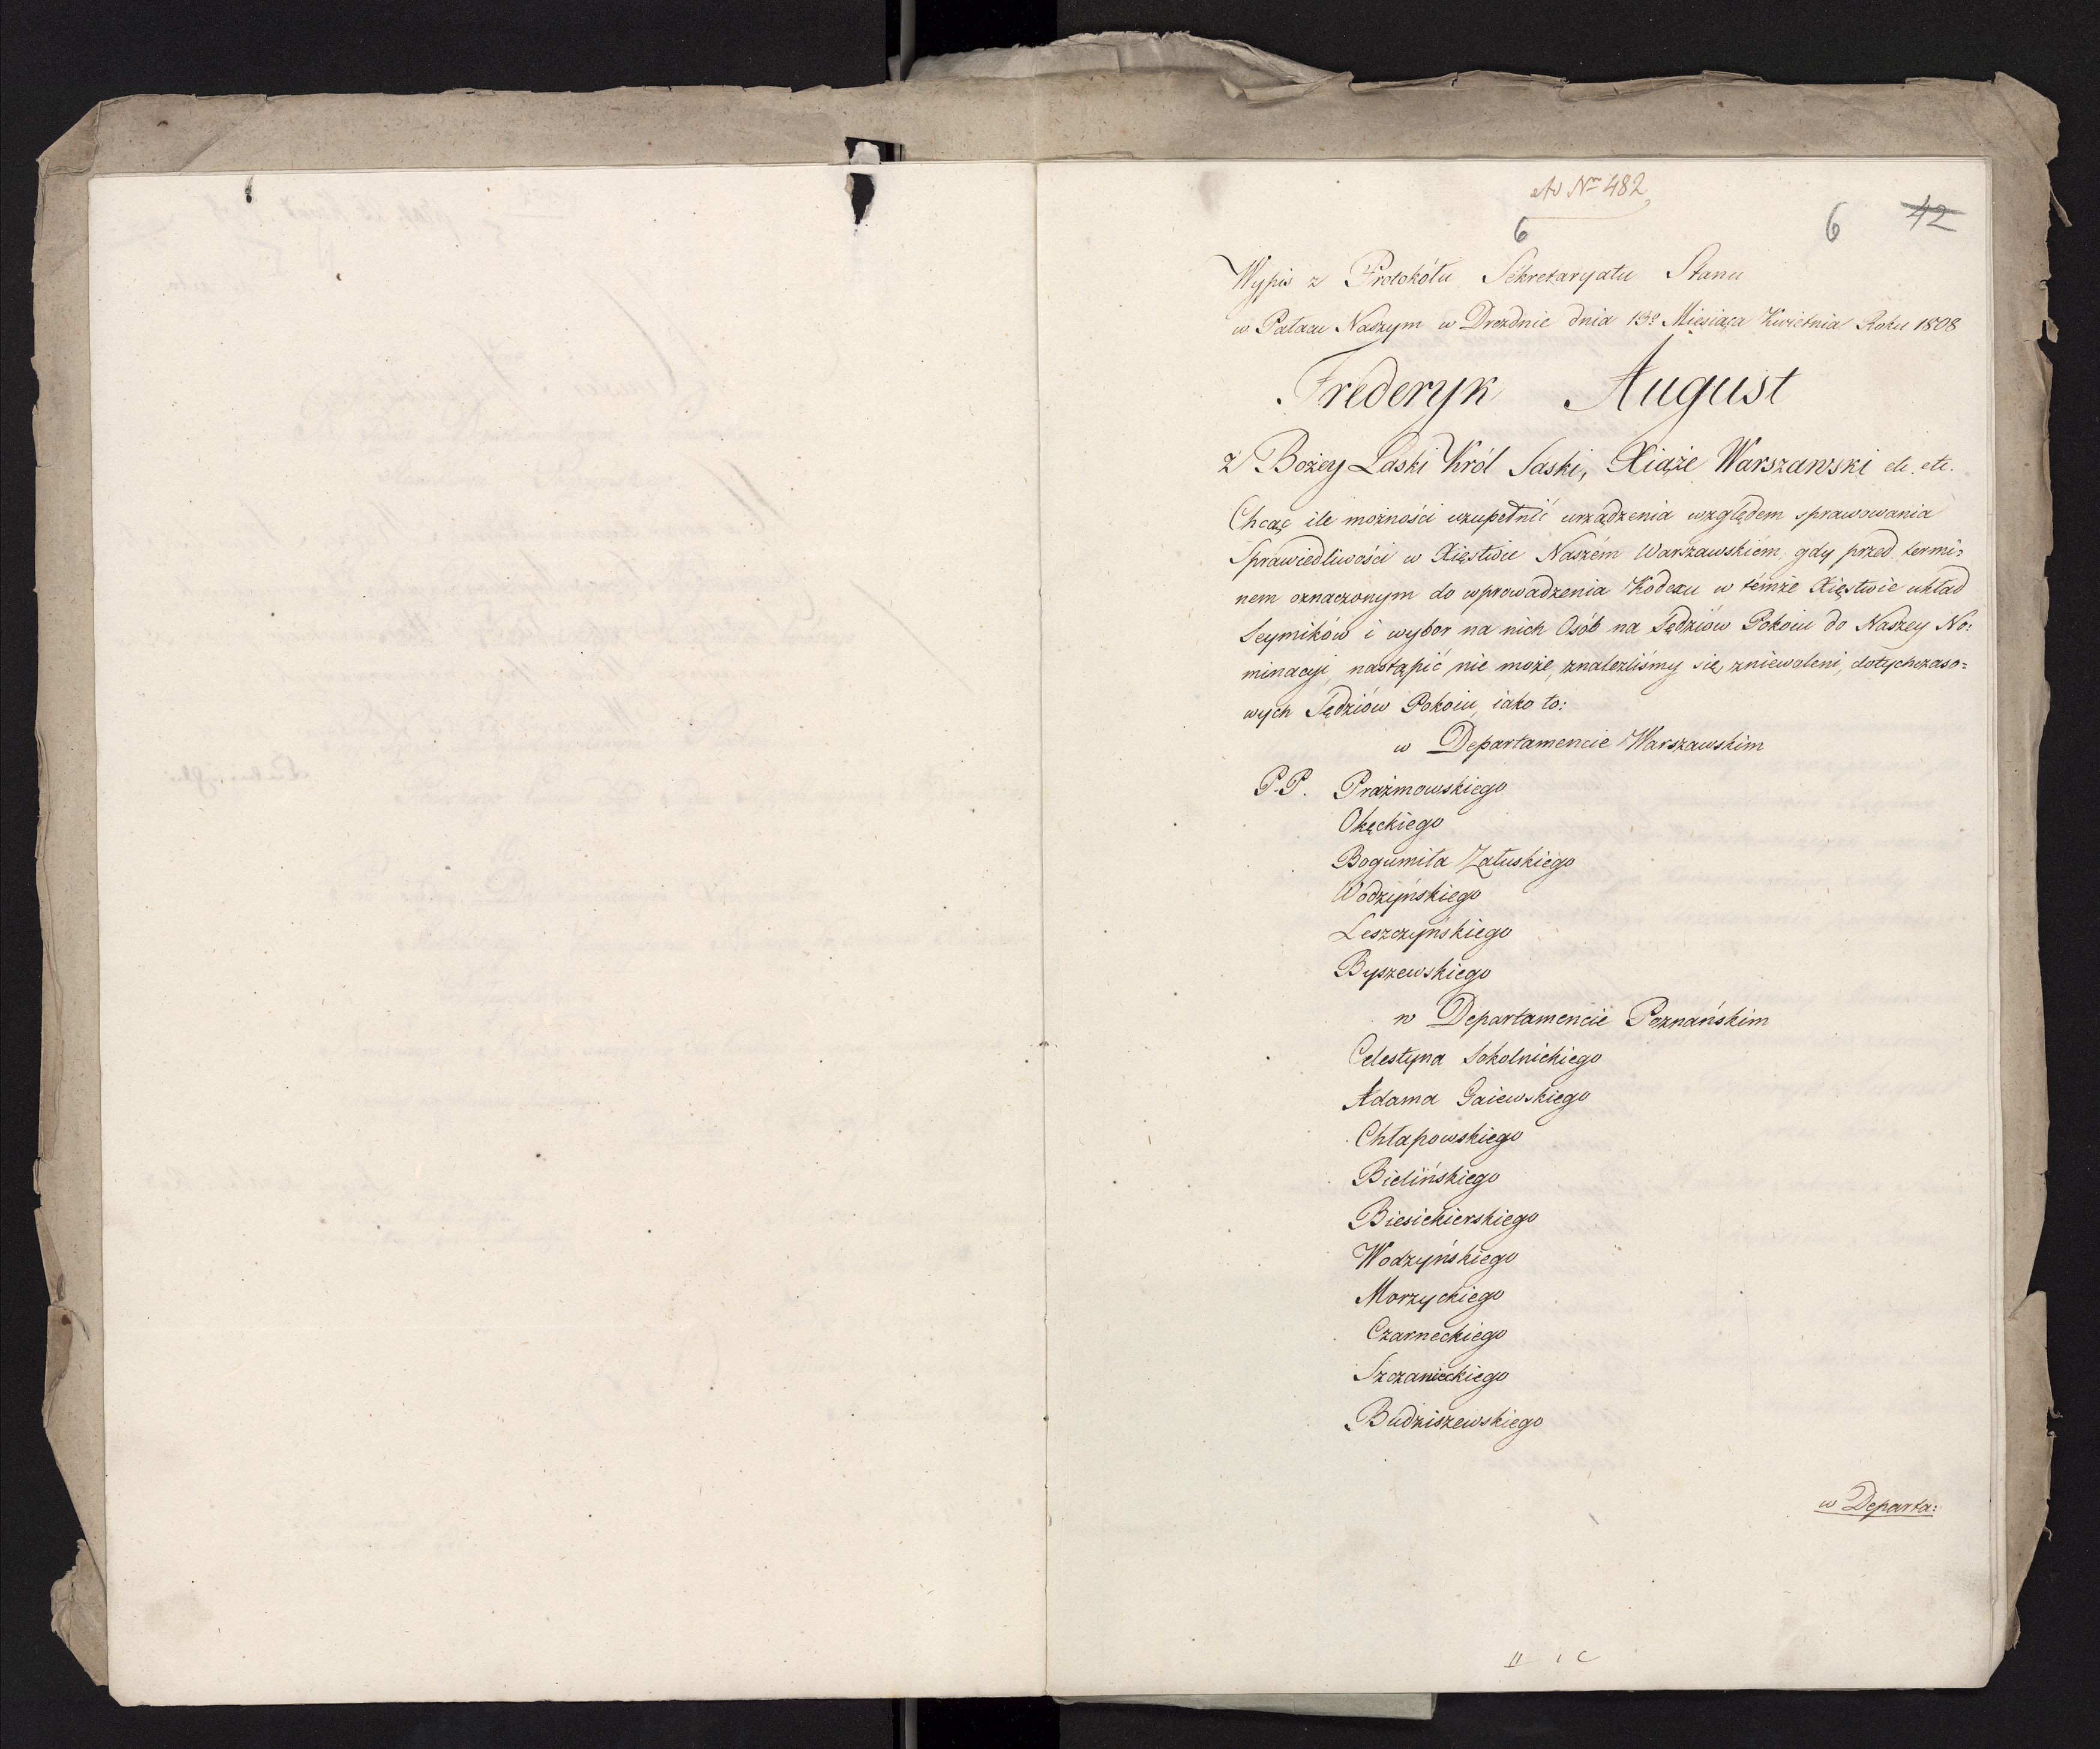 Ad Nrm 482.
6
6 42
Wypis z Protokółu Sekretaryatu Stanu
w Pałacu Naszym w Dreźdnie dnia 13º Miesiąca Kwietnia Roku 1808
Frederyk August
z Bożey Łaski Król Saski, Xiąże Warszawski etc. etc.
Chcąc ile możności uzupełnić urządzenia względem sprawowania
Sprawiedliwości w Xięstwie Naszém Warszawskiém, gdy przed termi=
nem oznaczonym do wprowadzenia Kodexu w témże Xięstwie układ
Seymików i wybor na nich Osób na Sędziów Pokoiu do Naszey No=
minacyi, nastąpić nie może, znaleźliśmy się zniewoleni, dotychczaso=
wych Sędziów Pokoiu, iako to:
w Departamencie Warszawskim
P.P. Prażmowskiego
Okęckiego
Bogumiła Załuskiego
Wodzyńskiego
Leszczyńskiego
Byszewskiego
w Departamencie Poznańskim
Celestyna Sokolnickiego
Adama Gaiewskiego
Chłapowskiego
Bielińskiego
Biesiekierskiego
Wodzyńskiego
Morzyckiego
Czarneckiego
Szczanieckiego
Budziszewskiego
w Departa:
II 1 C